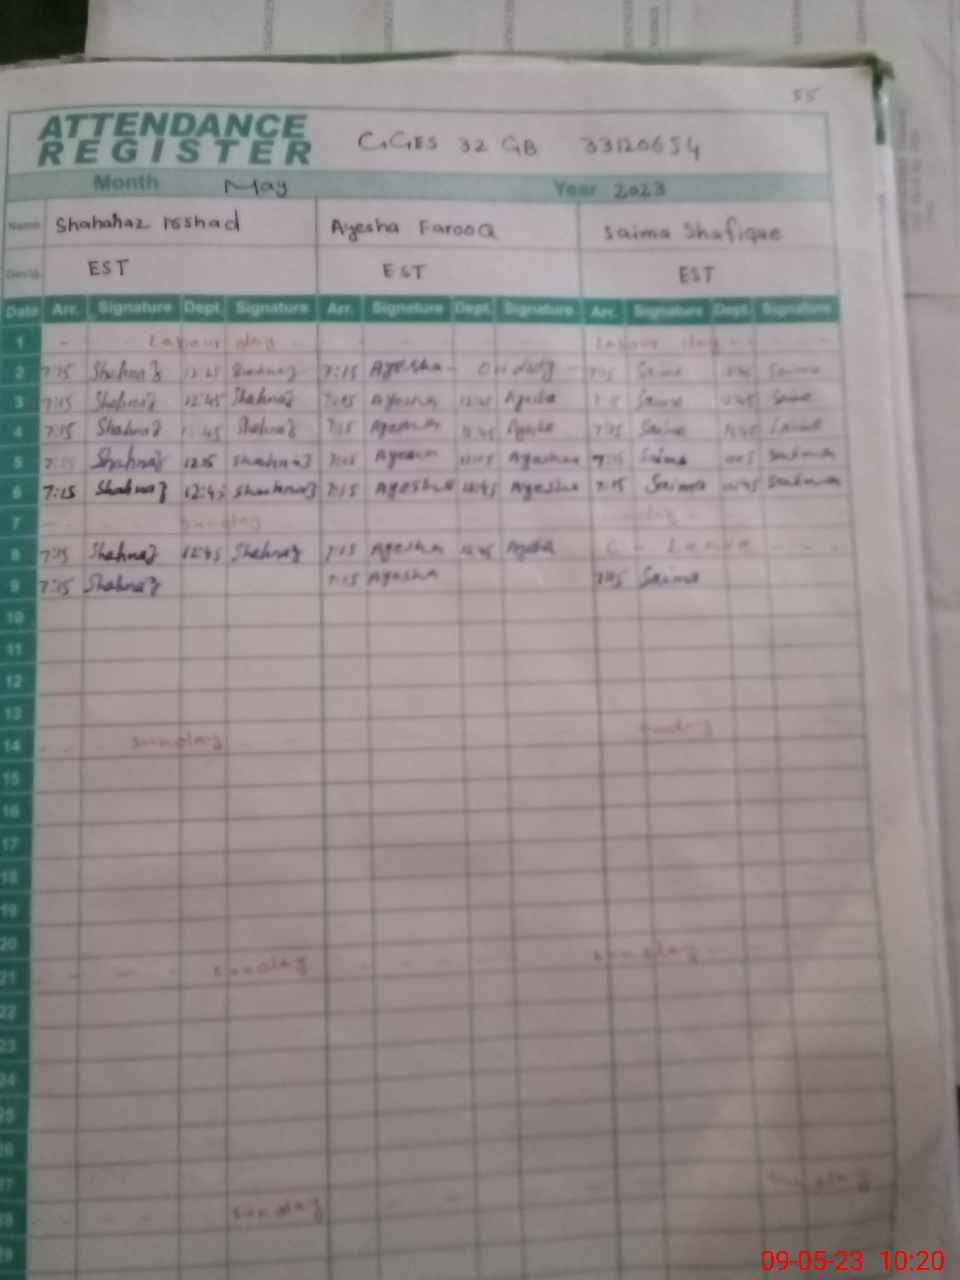 55
ATTENDANCE REGISTER GGES 32 GB 33120654
Month May Year 2023
Name Shahanaz Irshad Ayesha FarooQ Saima Shafique
Desig. EST EST EST
Date Arr. Signature Dept. Signature Arr. Signature Dept. Signature Arr. Signature Dept. Signature
1 - Labour day - - - - Labour day - -
2 7:15 Shahnaz 12:45 Shahnaz 7:15 Ayesha - On duty - 7:15 Saima Saima
3 7:15 Shahnaz 12:45 Shahnaz 7:15 Ayesha 12:45 Ayesha Saima 12:45 Saima
4 7:15 Shahnaz 12:45 Shahnaz 7:15 Ayesha 12:45 Ayesha 7:15 Saima 12:45 Saima
5 7:15 Shahnaz Shahnaz 7:15 Ayesha Ayesha 7:15 Saima Saima
6 7:15 Shahnaz 12:45 Shahnaz 7:15 Ayesha 12:45 Ayesha 7:15 Saima 12:45 Saima
7 Sunday
8 7:15 Shahnaz 12:45 Shahnaz 7:15 Ayesha 12:45 Ayesha C - Leave
9 7:15 Shahnaz 7:15 Ayesha 7:15 Saima
10
11
12
13
14 Sunday Sunday
15
16
17
18
19
20
21 Sunday Sunday
22
23
24
25
26
27
28 Sunday Sunday
29
09-05-23 10:20